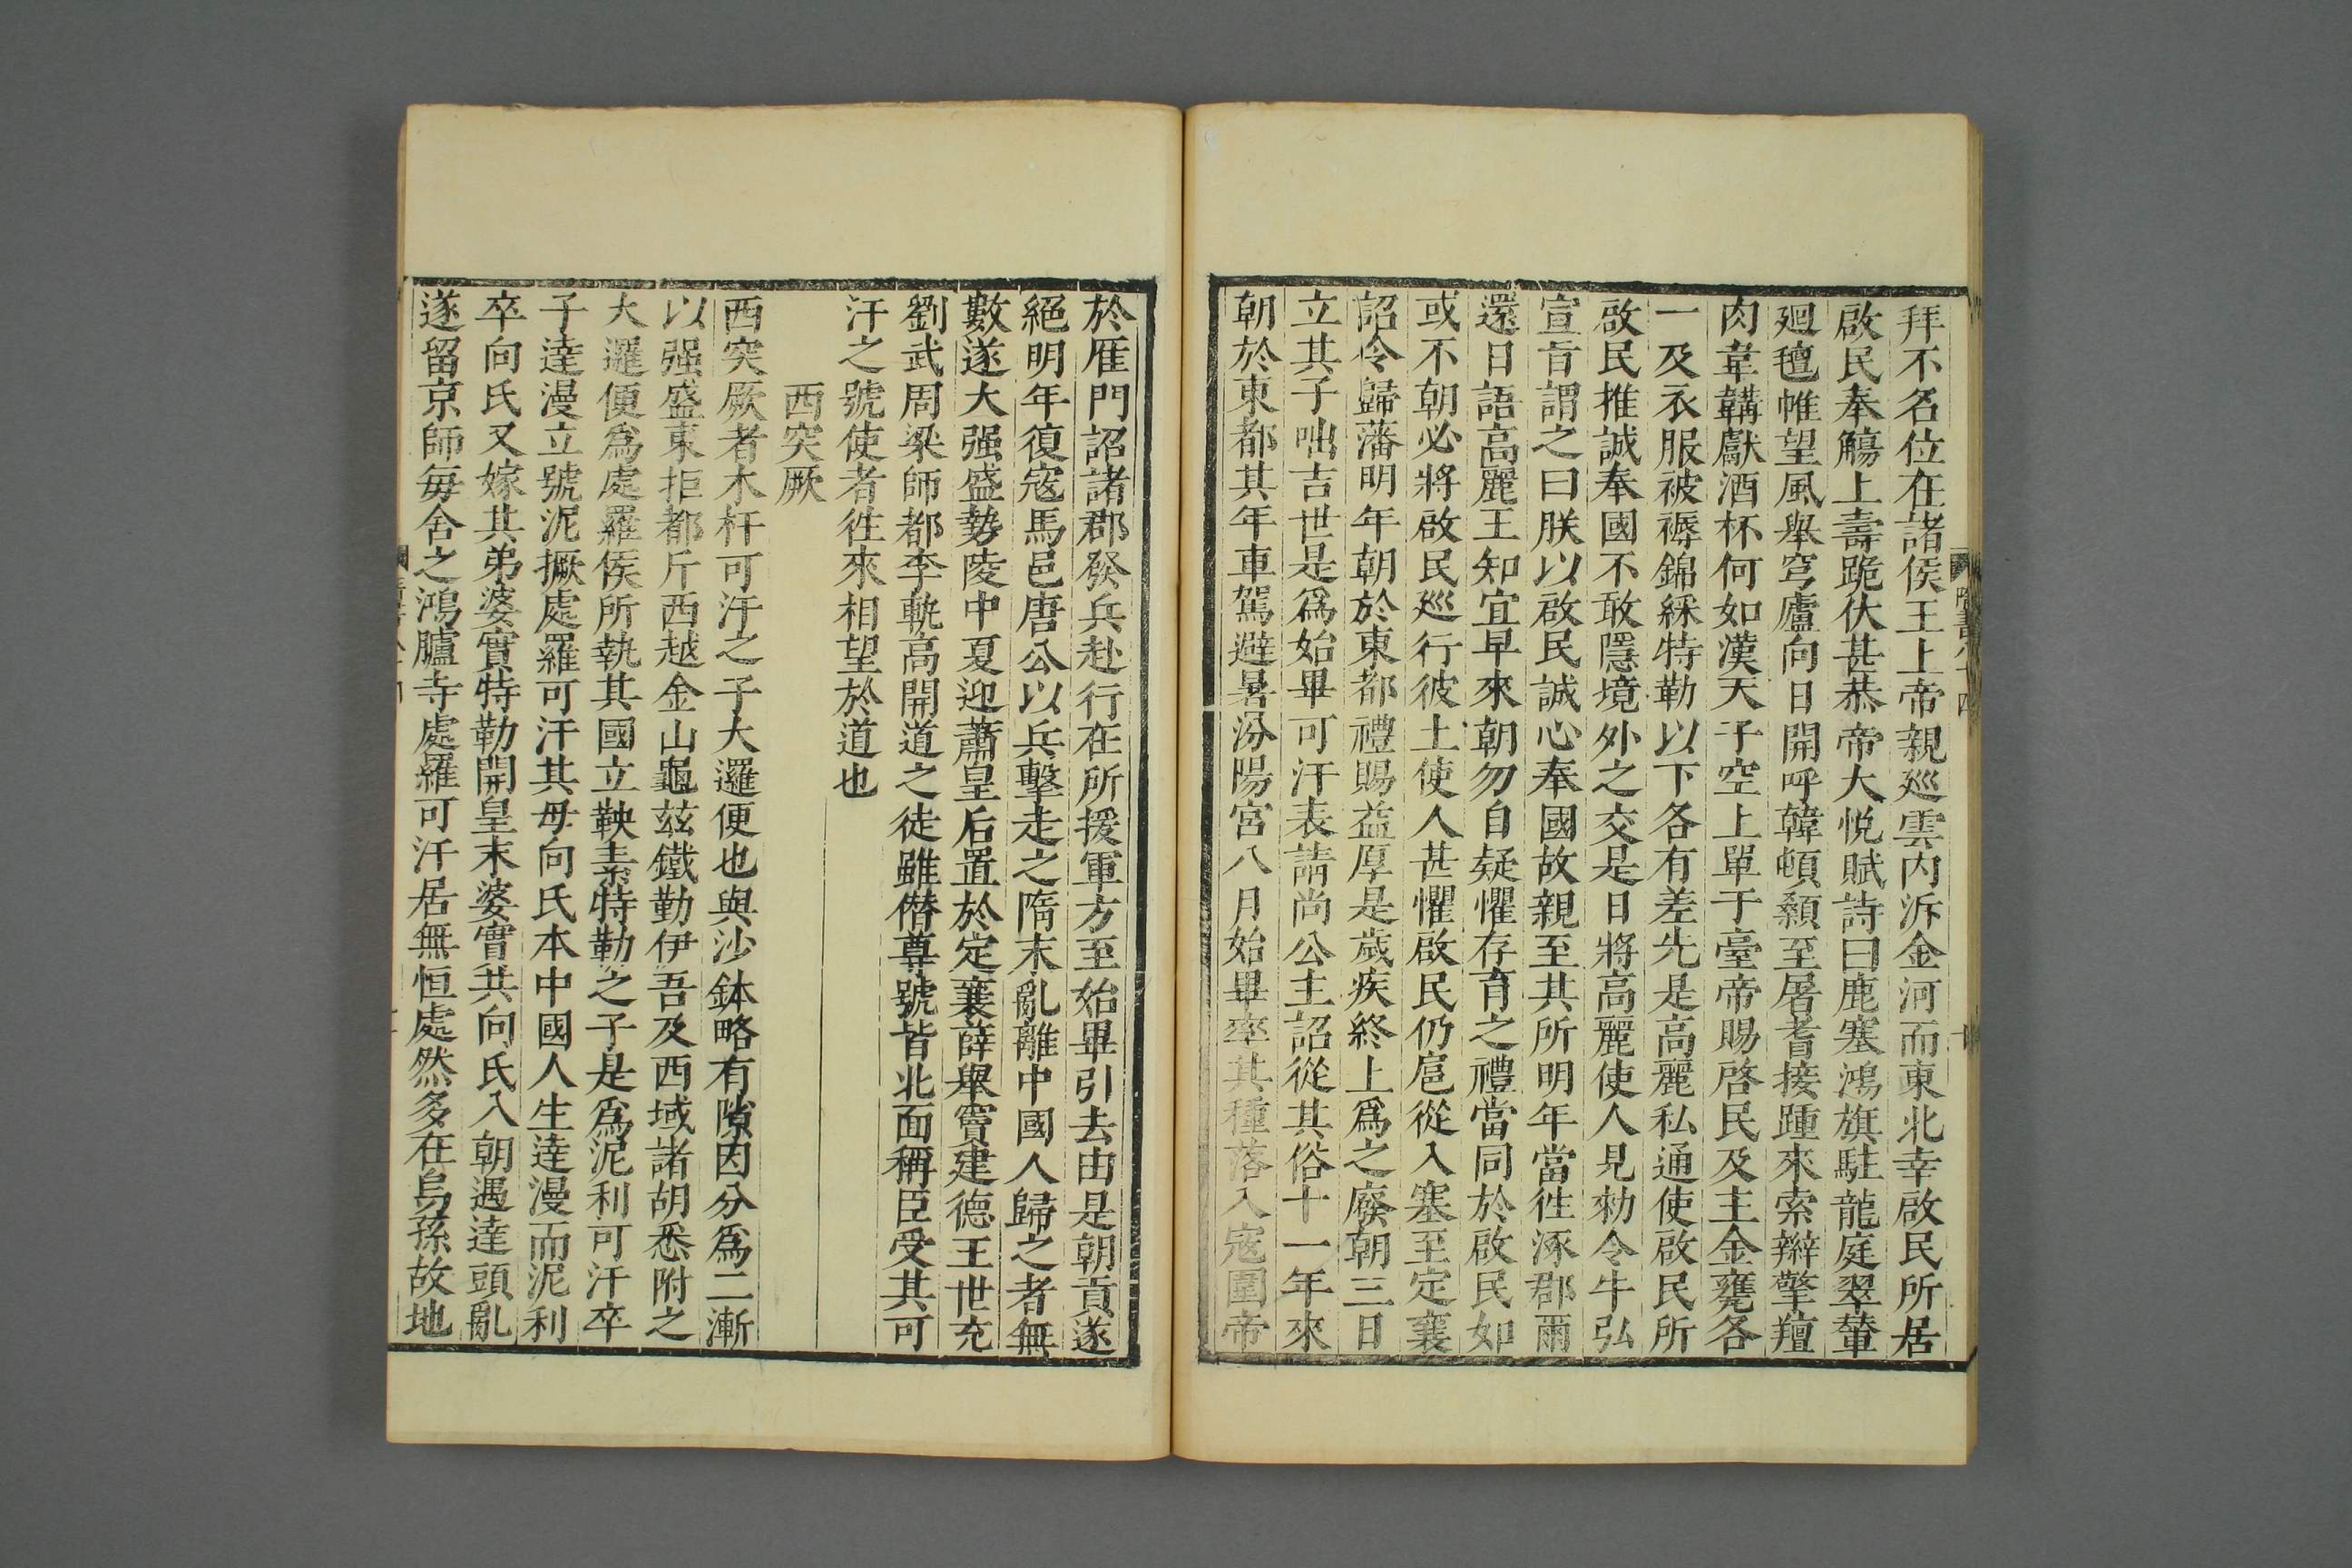 拜不名位在諸侯王上帝親巡雲内泝金河而東北幸啟民所居
啟民奉觴上壽跪伏甚恭帝大悅賦詩曰鹿塞鴻旗駐龍庭翠輦
廻氊帷望風舉穹廬向日開呼韓頓顙至屠耆接踵來索辮擎羶
肉韋韝獻酒杯何如漢天子空上單于臺帝賜啓民及主金甕各
一及衣服被褥錦綵特勒以下各有差先是高麗私通使啟民所
啟民推誠奉國不敢隱境外之交是日將高麗使人見勑令牛弘
宣旨謂之曰朕以啟民誠心奉國故親至其所明年當徃涿郡爾
還日語高麗王知宜早來朝勿自疑懼存育之禮當同於啟民如
或不朝必將啟民巡行彼土使人甚懼啟民仍扈從入塞至定襄
詔令歸藩明年朝於東都禮賜益厚是歲疾終上爲之廢朝三日
立其子咄吉世是爲始畢可汗表請尚公主詔從其俗十一年來
朝於東都其年車駕避暑汾陽宮八月始畢率其種落入寇圍帝
於雁門詔諸郡發兵赴行在所援軍方至始畢引去由是朝貢遂
絕明年復寇馬邑唐公以兵擊走之隋末亂離中國人歸之者無
數遂大强盛勢陵中夏迎蕭皇后置於定襄薛舉竇建德王世充
劉武周梁師都李軌高開道之徒雖僭尊號皆北面稱臣受其可
汗之號使者徃來相望於道也
西突厥
西突厥者木杆可汗之子大邏便也與沙鉢略有隙因分爲二漸
以强盛東拒都斤西越金山龜玆鐵勒伊吾及西域諸胡悉附之
大邏便爲處羅侯所執其國立鞅素特勒之子是爲泥利可汗卒
子達漫立號泥撅處羅可汗其母向氏本中國人生達漫而泥利
卒向氏又嫁其弟婆實特勒開皇末婆實共向氏入朝遇達頭亂
遂留京師每舍之鴻臚寺處羅可汗居無恒處然多在烏孫故地